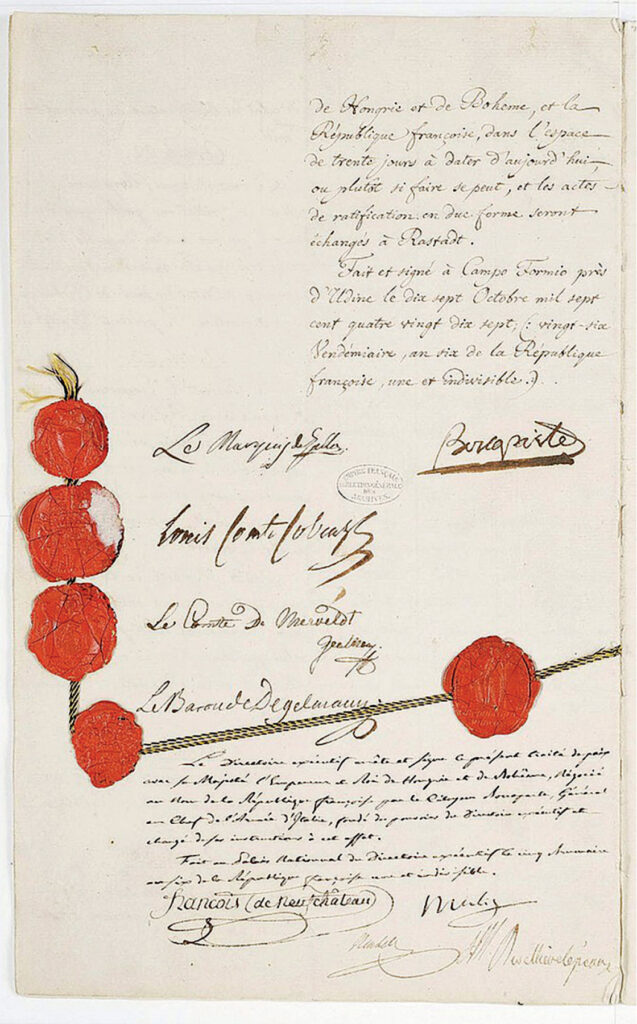 de Hongrie et de Boheme, et la
République françoise, dans l'espace
de trente jours à dater d'aujourd'hui
ou plutôt si faire se peut, et les actes
de ratification en due forme seront
échangés à Rastadt.
Fait et signé à Campo Formio près
d'Udine le dix sept Octobre mil sept
cent quatre vingt dix sept; (: vingt-six
Vendémiaire, an six de la République
françoise, une et indivisible :).
Le Marquis de Gallo
Bonaparte
ARCHIVES
Louis Comte Cobenzl
Le Comte De Merveldt
Le Baron de Degelmann
Le Directoire exécutif arrête et signe le présent traité de paix
avec sa Majesté l'Empereur et Roi de Hongrie et de Bohême, Négocié
au Nom de la République françoise par le Citoyen Bonaparte, Général
en Chef de l'Armée d'Italie, fondé de pouvoirs du Directoire exécutif et
chargé de ses instructions à cet effet.
Fait au Palais National du Directoire exécutif le cinq Brumaire
an six de la République françoise une et indivisible.
François (de Neufchâteau)